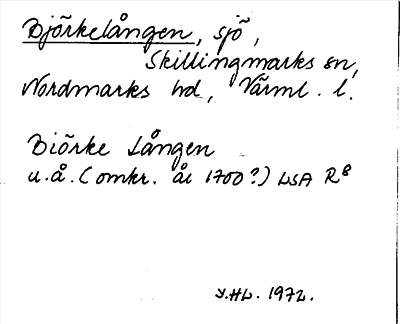 Björkelången, sjö,
Skillingmarks sn,
Nordmarks hd, Värml. l.
Biörke Lången
u.å. (omkr. år 1700?) LSA R8
Y.HL. 1972.